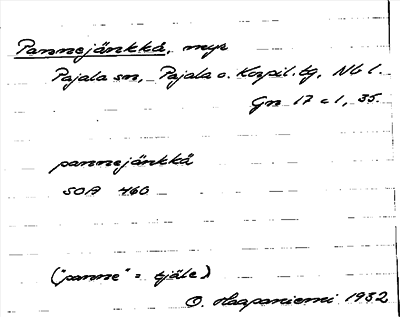 Pannejänkkä, myr
Pajala sn, Pajala o. Korpil. tg, Nb l.
Gn 17 c 1, 35.
pannejänkkä
SOA 460
("panne" = tjäle)
O. Haapaniemi 1932